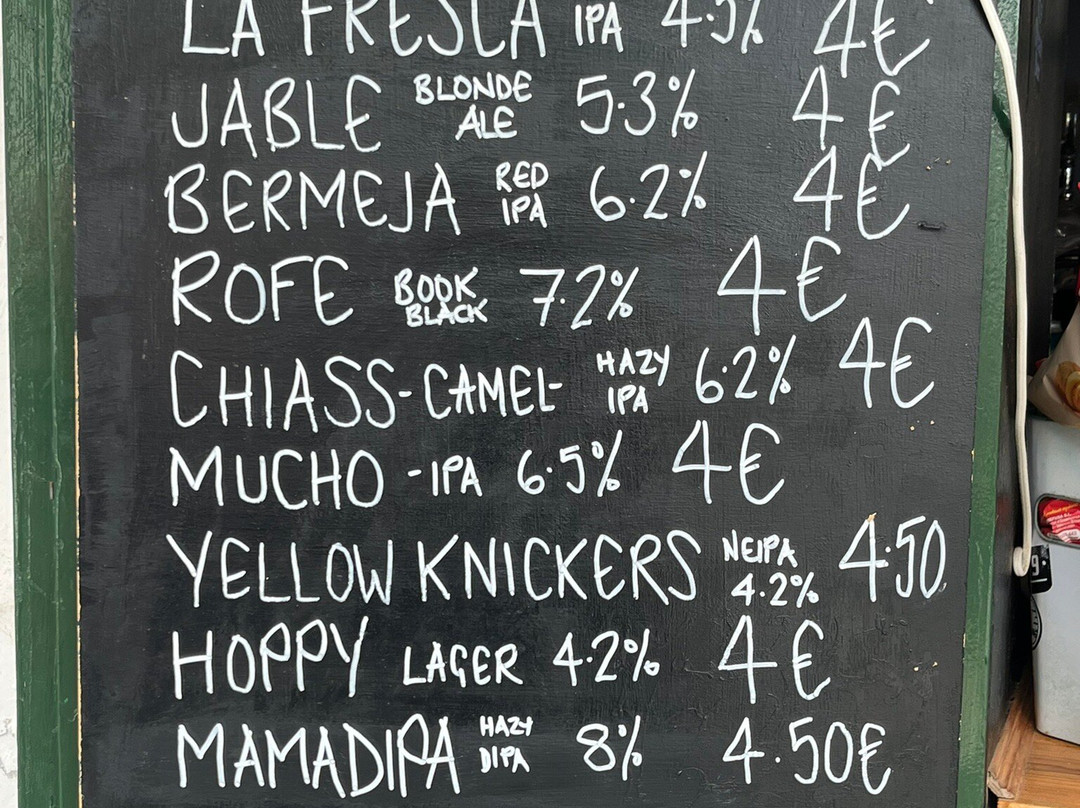 LA FRESCA IPA 4.5% 4€
JABLE BLONDE ALE 5.3% 4€
BERMEJA RED IPA 6.2% 4€
ROFE BOOK BLACK 7.2% 4€
CHIASS-CAMEL- HAZY IPA 6.2% 4€
MUCHO -IPA 6.5% 4€
YELLOW KNICKERS NEIPA 4.2% 4.50
HOPPY LAGER 4.2% 4€
MAMADIPA HAZY DIPA 8% 4.50€